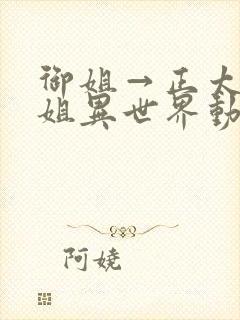 御姐→正太
姐異世界動
阿嬈